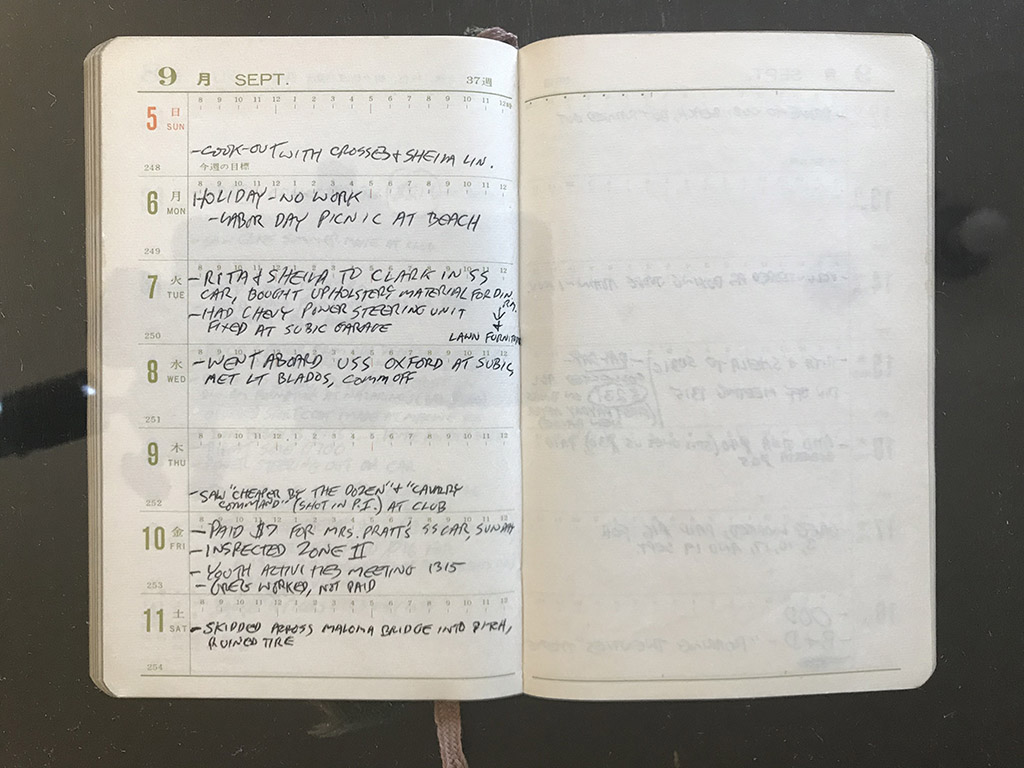 9 月 SEPT. 37週
8 9 10 11 12 1 2 3 4 5 6 7 8 9 10 11 12
5 日 SUN
- COOK-OUT WITH CROSSES & SHEILA LIN.
248 今週の目標
8 9 10 11 12 1 2 3 4 5 6 7 8 9 10 11 12
6 月 MON
HOLIDAY - NO WORK
- LABOR DAY PICNIC AT BEACH
249
8 9 10 11 12 1 2 3 4 5 6 7 8 9 10 11 12
7 火 TUE
- RITA & SHEILA TO CLARK IN SS
CAR, BOUGHT UPHOLSTERY MATERIAL FOR DIN. RM.
- HAD CHEVY POWER STEERING UNIT
FIXED AT SUBIC GARAGE
& LAWN FURNITURE
250
8 9 10 11 12 1 2 3 4 5 6 7 8 9 10 11 12
8 水 WED
- WENT ABOARD USS OXFORD AT SUBIC,
MET LT BLADOS, COMMOFF
251
8 9 10 11 12 1 2 3 4 5 6 7 8 9 10 11 12
9 木 THU
- SAW "CHEAPER BY THE DOZEN" & "CAVALRY
COMMAND" (SHOT IN P.I.) AT CLUB
252
8 9 10 11 12 1 2 3 4 5 6 7 8 9 10 11 12
10 金 FRI
- PAID $7 FOR MRS. PRATT'S SS CAR,
- INSPECTED ZONE II
- YOUTH ACTIVITIES MEETING 1315
- GREG WORKED, NOT PAID
253
8 9 10 11 12 1 2 3 4 5 6 7 8 9 10 11 12
11 土 SAT
- SKIDDED ACROSS MALOMA BRIDGE INTO DITCH,
RUINED TIRE
254